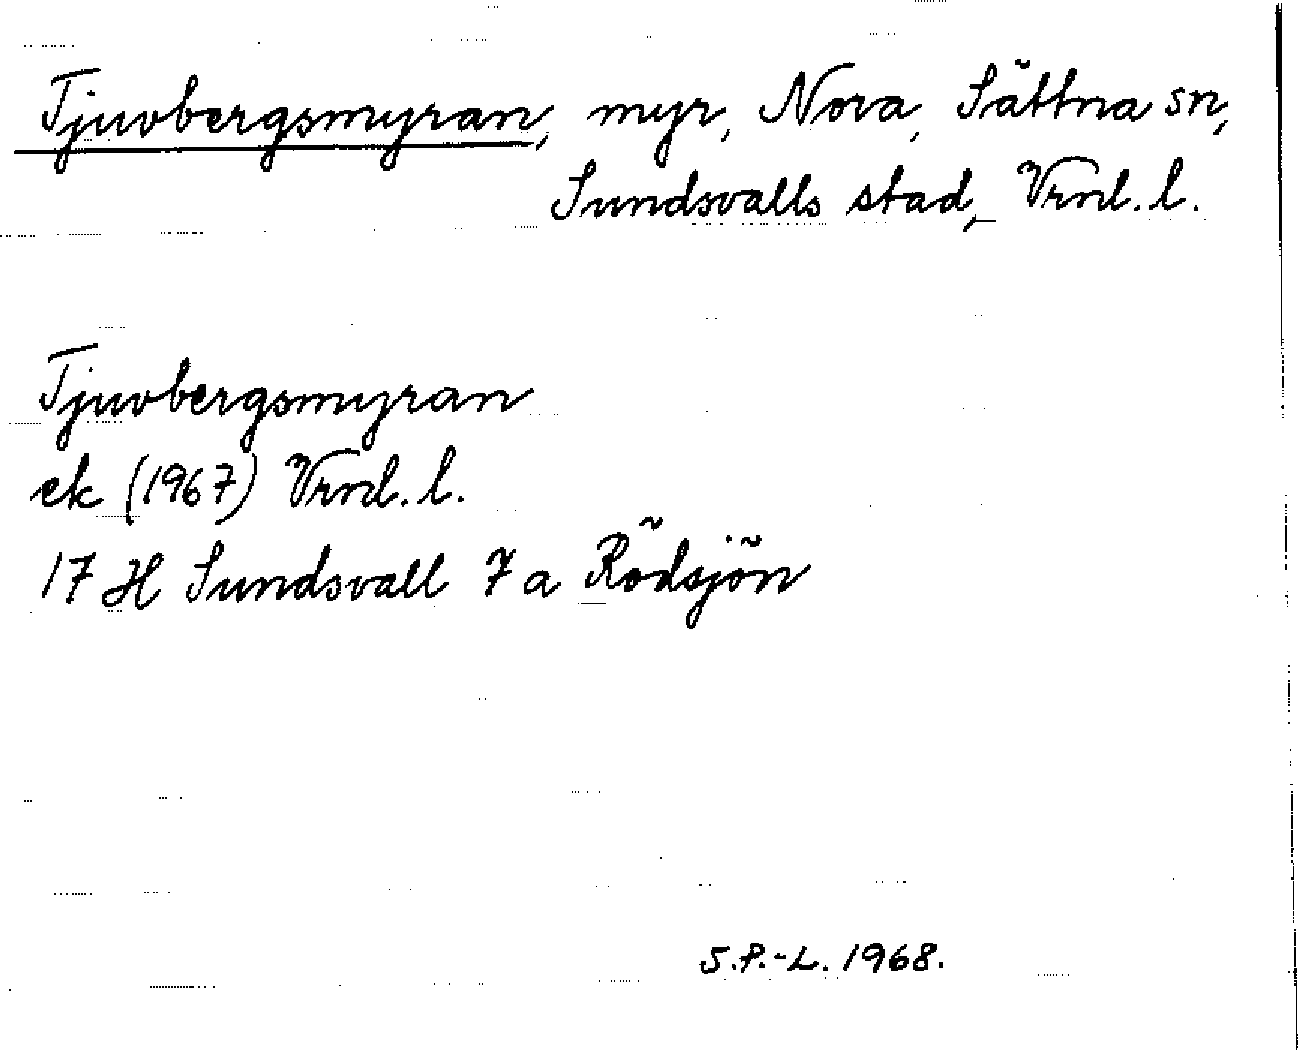 Tjuvbergsmyran, myr, Nora, Sättna sn,
Sundsvalls stad, Vrnl. l.
Tjuvbergsmyran
ek (1967) Vrnl. l.
17 H Sundsvall 7 a Rödsjön
S.P.-L. 1968.